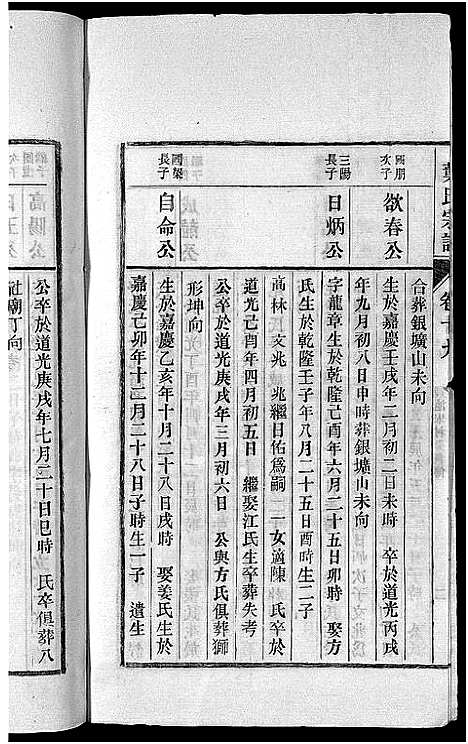 氏宗譜
卷十九
國朋
次子
欲春公
合葬銀壙山未向
生於嘉慶壬戌年二月初二日未時 卒於道光丙戌
年九月初八日申時葬銀壙山未向
三陽
長子
日炳公
字龍章生於乾隆己酉年六月二十五日卯時 娶方
氏生於乾隆壬子年八月二十五日酉時生二子
高林 氏 文兆 兆繼日佑爲嗣 一女適陳 氏卒於
道光戊申年四月初五日 繼娶江氏生卒葬失考
公卒於道光庚戌年三月初六日 公與方氏俱葬獅
形坤向
國榮
長子
自命公
生於嘉慶乙亥年十月二十八日戌時 娶姜氏生於
嘉慶己卯年十二月二十八日子時生一子 遺生
高陽公
公卒於道光庚戌年七月二十日巳時 氏卒俱葬八
社廟丁向